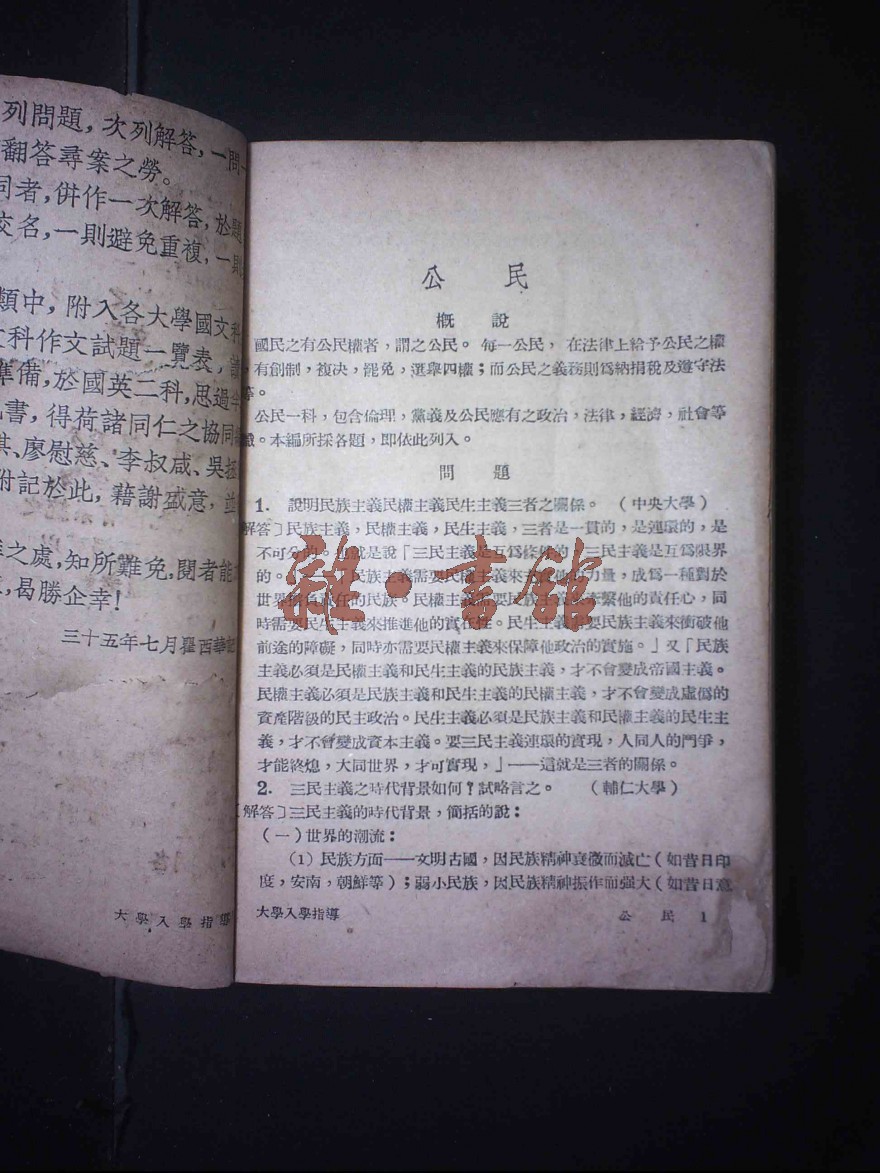 列問題，次列解答，一問一
翻答尋案之勞。
同者，併作一次解答，於題
校名，一則避免重複，一則
類中，附入各大學國文科
文科作文試題一覽表，讀
準備，於國英二科，思過半
書，得荷諸同仁之協同
祺、廖慰慈、李叔咸、吳
附記於此，藉謝盛意，並
之處，知所難免，閱者能
，曷勝企幸！
三十五年七月瞿西華
大學入學指導
公民
概說
國民之有公民權者，謂之公民。每一公民，在法律上給予公民之權
，有創制，複决，罷免，選舉四權；而公民之義務則爲納捐稅及遵守法
等。
公民一科，包含倫理，黨義及公民應有之政治，法律，經濟，社會等
識。本編所採各題，即依此列入。
問題
1. 說明民族主義民權主義民生主義三者之關係。（中央大學）
〔解答〕民族主義，民權主義，民生主義，三者是一貫的，是連環的，是
不可分的。也就是說「三民主義是互爲條件的，三民主義是互爲限界
的。民族主義需要民權主義來 他的力量，成爲一種對於
世界擔負責任的民族。民權主義需要民族主義來牽繫他的責任心，同
時需要民生主義來推進他的實在性。民生主義需要民族主義來衝破他
前途的障礙，同時亦需要民權主義來保障他政治的實施。」又「民族
主義必須是民權主義和民生主義的民族主義，才不會變成帝國主義。
民權主義必須是民族主義和民生主義的民權主義，才不會變成虛僞的
資產階級的民主政治。民生主義必須是民族主義和民權主義的民生主
義，才不會變成資本主義。要三民主義連環的實現，人同人的鬥爭，
才能終熄，大同世界，才可實現，」——這就是三者的關係。
2. 三民主義之時代背景如何？試略言之。（輔仁大學）
〔解答〕三民主義的時代背景，簡括的說：
（一）世界的潮流：
（1）民族方面——文明古國，因民族精神衰微而滅亡（如昔日印
度，安南，朝鮮等）；弱小民族，因民族精神振作而强大（如昔日意
大學入學指導 公民 1
雜·書館